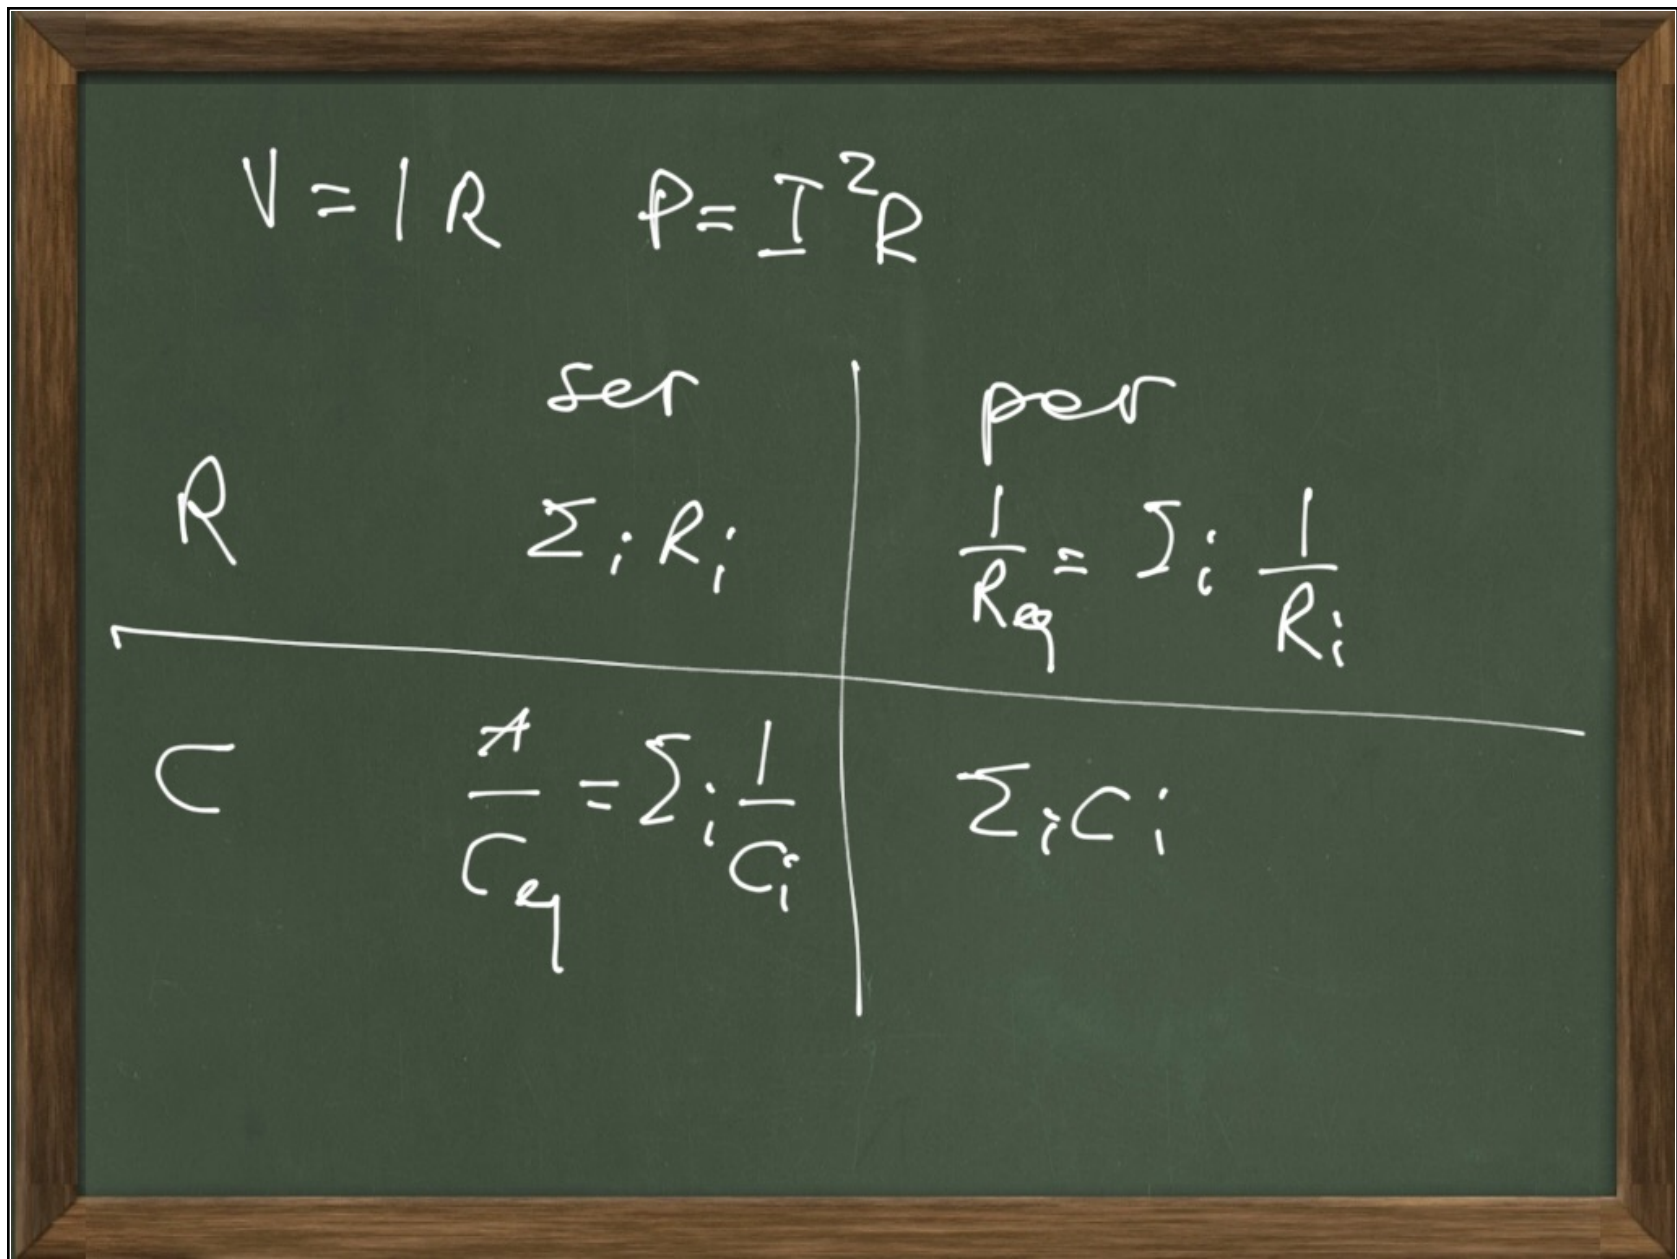 V = I R P = I²R
ser per
R Σ i R i 1/R eq = Σ i 1/R i
C A/C eq = Σ i 1/C i Σ i C i